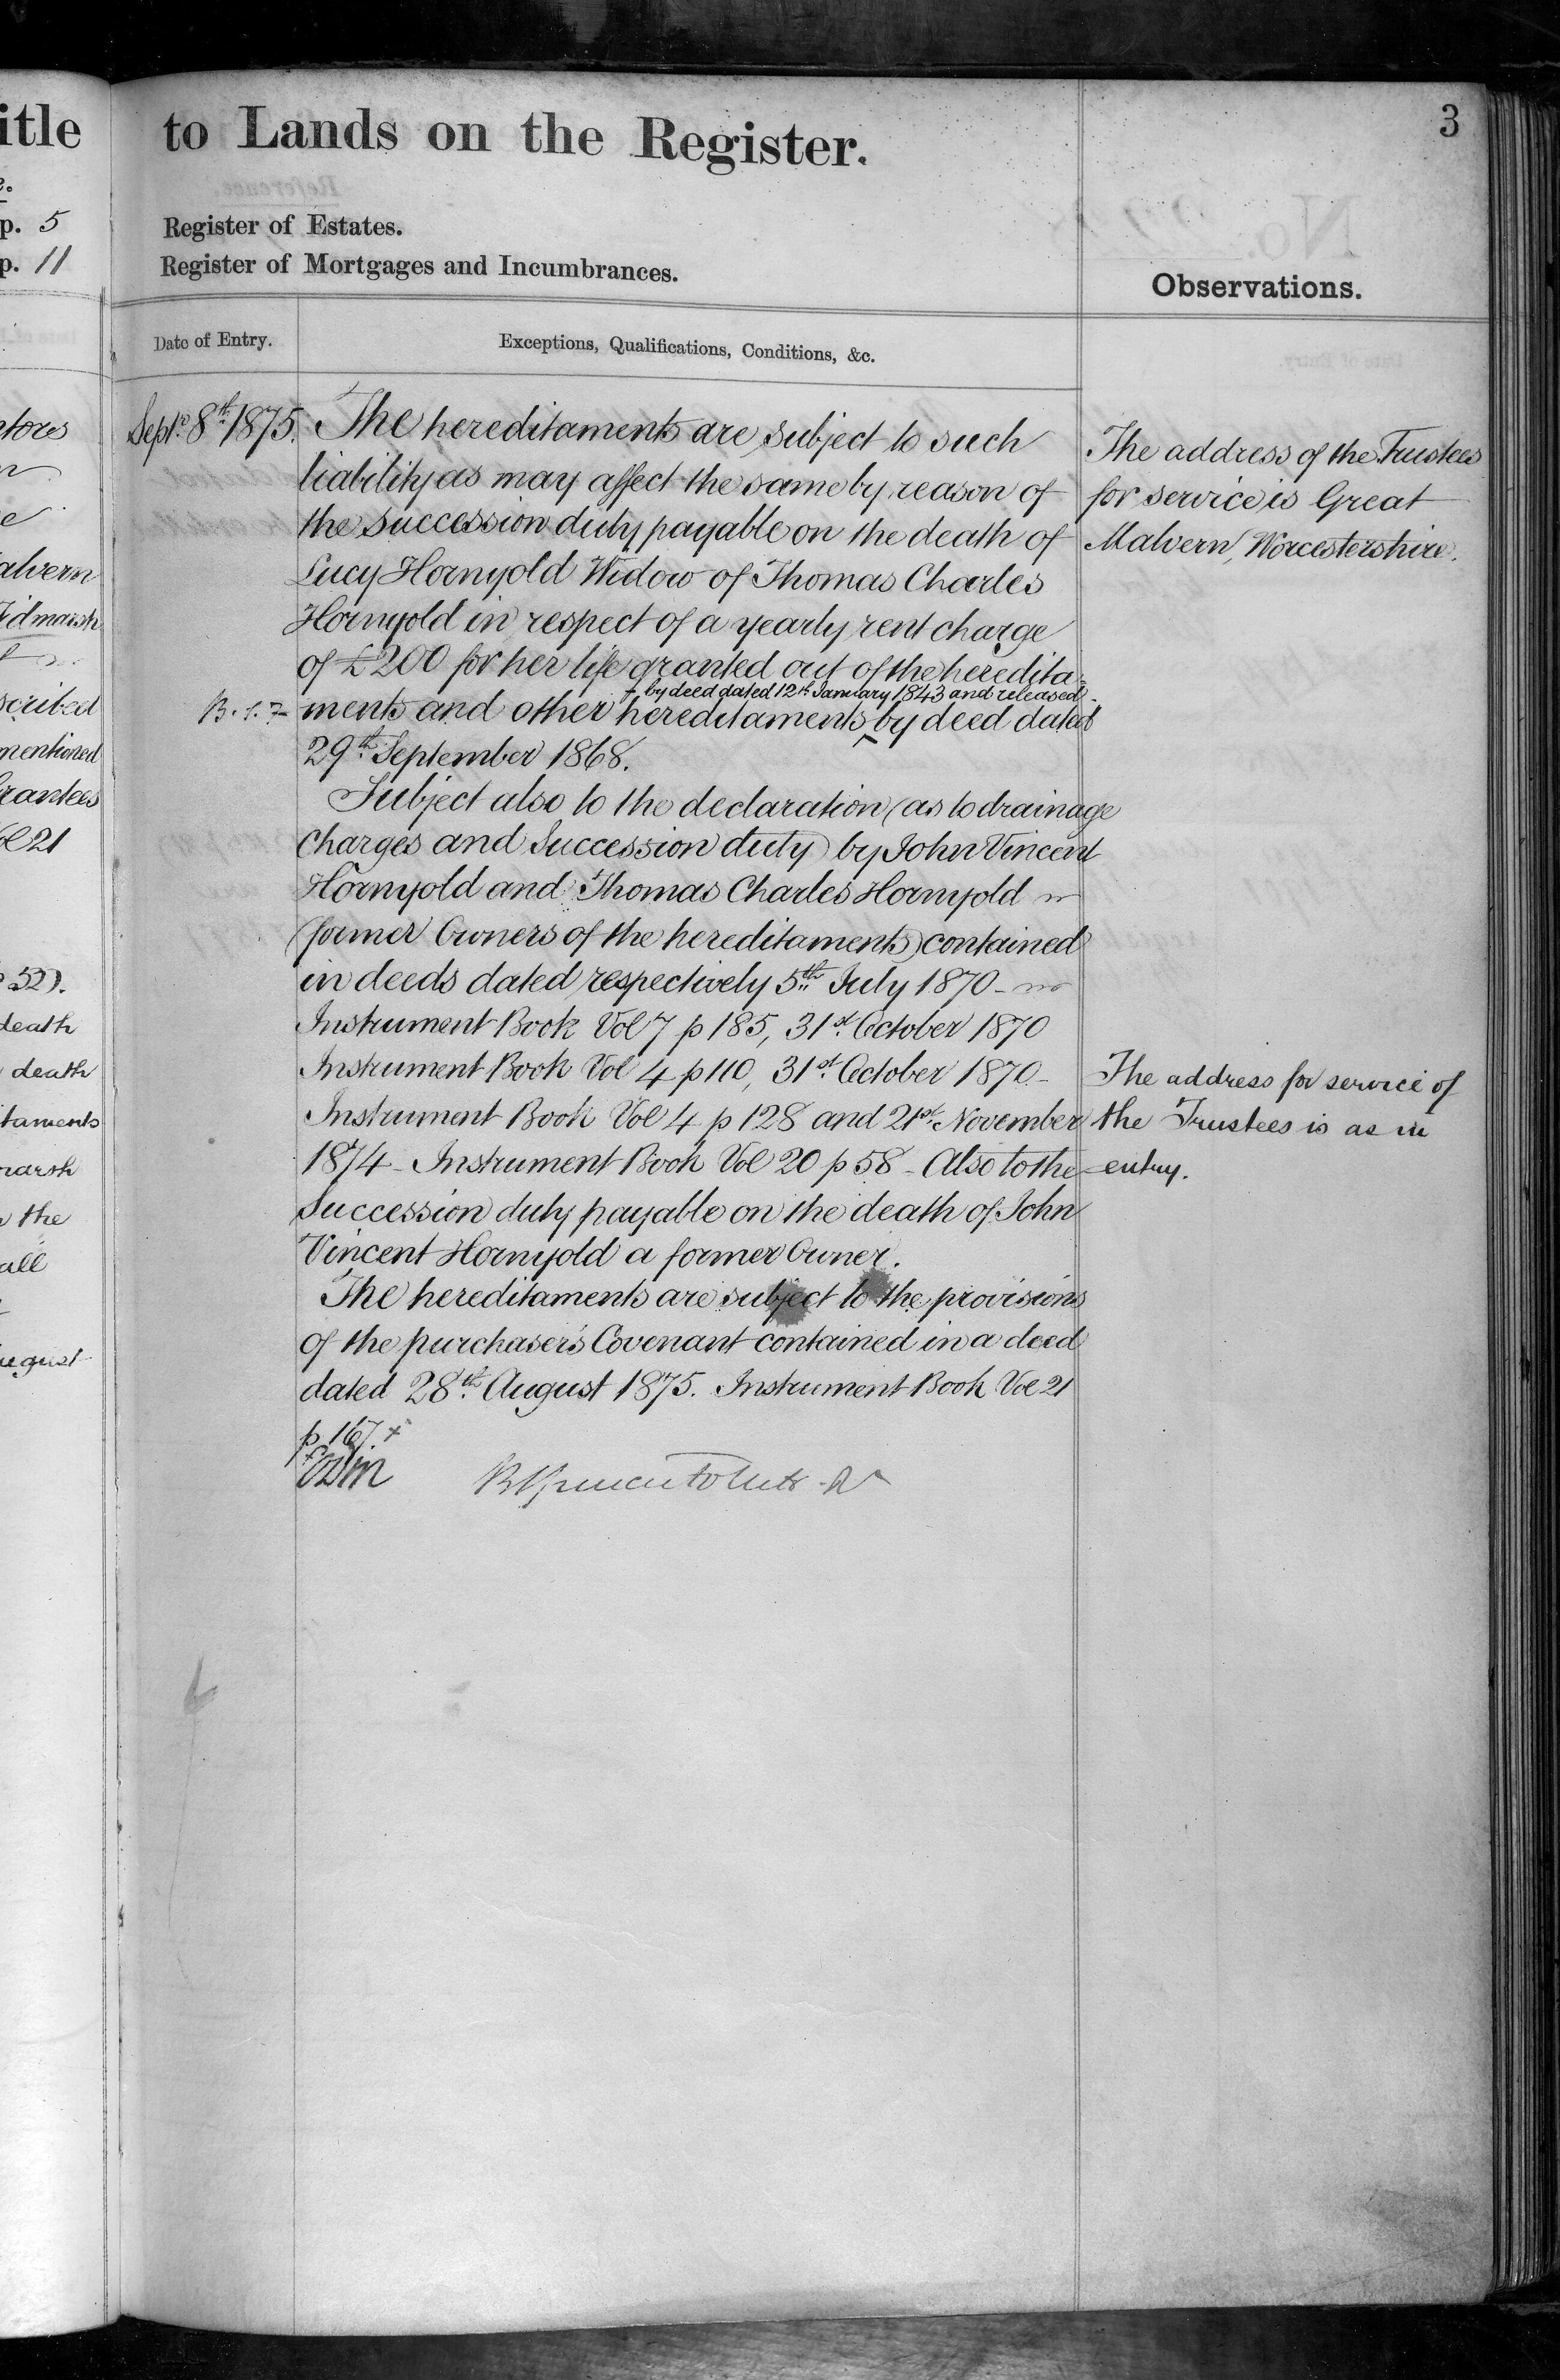 itle
p. 5
p. 11
tores
n
e
alvern
idmarsh
scribed
mentioned
Grantees
Vol 21
p 52).
death
death
taments
marsh
the
all
August
to Lands on the Register.
3
Register of Estates.
Register of Mortgages and Incumbrances.
Observations.
Date of Entry.
Exceptions, Qualifications, Conditions, &c.
Septr. 8th. 1875.
The hereditaments are subject to such
liability as may affect the same by reason of
the succession duty payable on the death of
Lucy Hornyold Widow of Thomas Charles
Hornyold in respect of a yearly rent charge
of £200 for her life granted out of the heredita-
by deed dated 12th January 1843 and released
ments and other hereditaments ‸ by deed dated
29th. September 1868.
Subject also to the declaration (as to drainage
Charges and Succession duty) by John Vincent
Hornyold and Thomas Charles Hornyold
(former Owners of the hereditaments) contained
in deeds dated respectively 5th. July 1870 -
Instrument Book Vol 7 p 185, 31st. October 1870
Instrument Book Vol 4 p 110, 31st. October 1870 -
Instrument Book Vol 4 p 128 and 21st. November
1874 - Instrument Book Vol 20 p 58 - Also to the
Succession duty payable on the death of John
Vincent Hornyold a former Owner.
The hereditaments are subject to the provisions
of the purchaser's Covenant contained in a deed
dated 28th. August 1875. Instrument Book Vol 21
p 167. +
The address of the Trustees
for service is Great
Malvern, Worcestershire.
The address for service of
the Trustees is as in
entry.